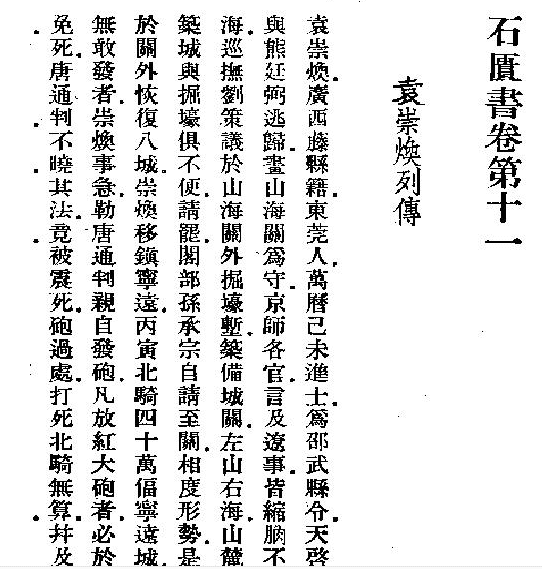 石匱書卷第十一
袁崇煥列傳
袁崇煥．廣西藤縣籍．東莞人．萬曆己未進士．爲邵武縣令．天啓
與熊廷弼逃歸．畫山海關爲守．京師各官．言及遼事．皆縮朒不
海．巡撫劉策議於山海關外掘壕塹．築備城關．左山右海．山麓
築城與掘壕俱不便．請罷．閣部孫承宗自請至關．相度形勢．是
於關外恢復八城．崇煥移鎮寧遠．丙寅北騎四十萬偪寧遠城．
無敢發者．崇煥事急．勒唐通判親自發砲．凡放紅大砲者．必於
免死．唐通判不曉其法．竟被震死．砲過處．打死北騎無算．幷及